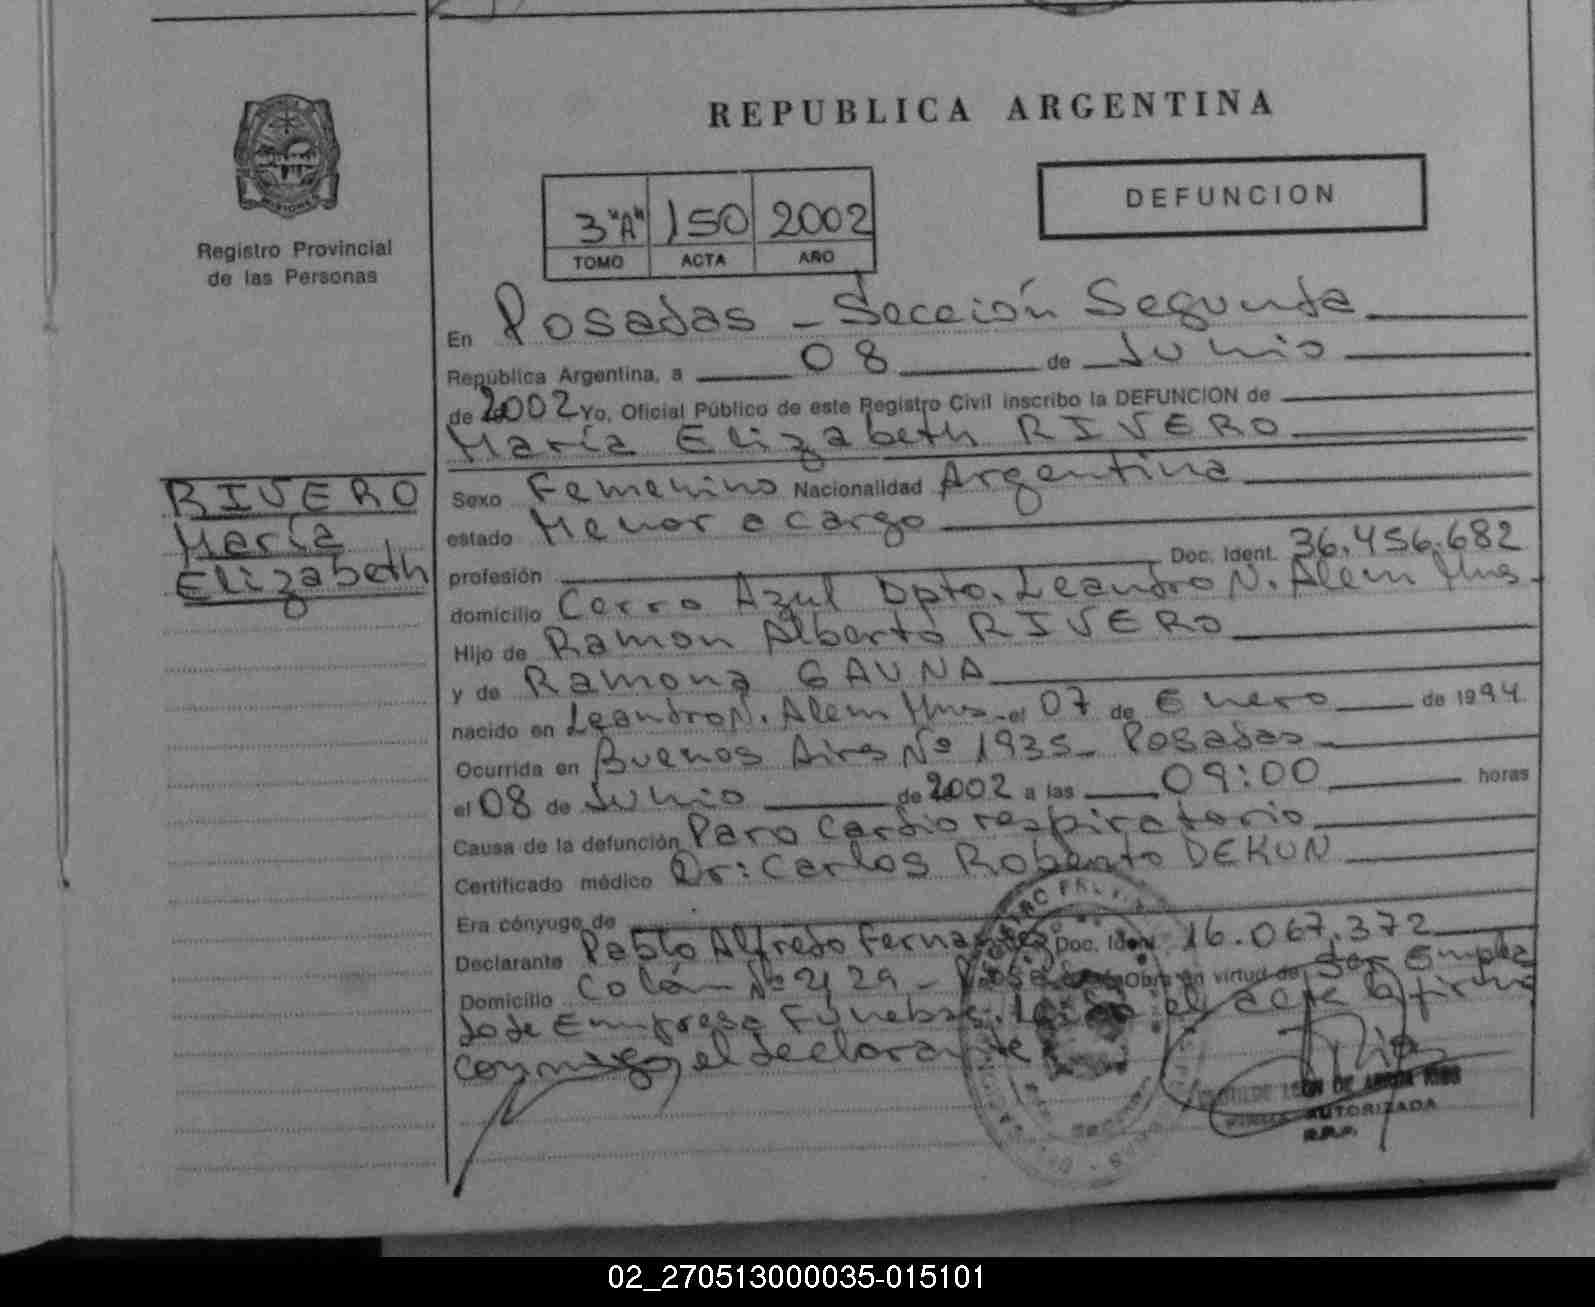 REPUBLICA ARGENTINA
DEFUNCION
3"A" 150 2002
TOMO ACTA AÑO
Registro Provincial
de las Personas
RIVERO
María
Elizabeth
En Posadas - Sección Segunda
República Argentina, a 08 de Junio
de 2002 Yo, Oficial Público de este Registro Civil inscribo la DEFUNCION de
María Elizabeth RIVERO
Sexo Femenino Nacionalidad Argentina
estado Menor a cargo
profesión Doc. Ident. 36.456.682
domicilio Cerro Azul Dpto. Leandro N. Alem Mnes.
Hijo de Ramon Alberto RIVERO
y de Ramona GAUNA
nacido en Leandro N. Alem Mnes. el 07 de Enero de 1994.
Ocurrida en Buenos Aires Nº 1935 - Posadas
el 08 de Junio de 2002 a las 09:00 horas
Causa de la defunción Paro Cardiorespiratorio
Certificado médico Dr: Carlos Roberto DEKUN
Era cónyuge de
Declarante Pablo Alfredo Fernandez Doc. Iden. 16.067.372
Domicilio Colón Nº 2129 - Posadas Obra en virtud de Ser Emplea
do de Empresa Fúnebre. Leída el acta la firma
conmigo, el declarante
LEON DE
FIRMA AUTORIZADA
R.P.P.
02_270513000035-015101